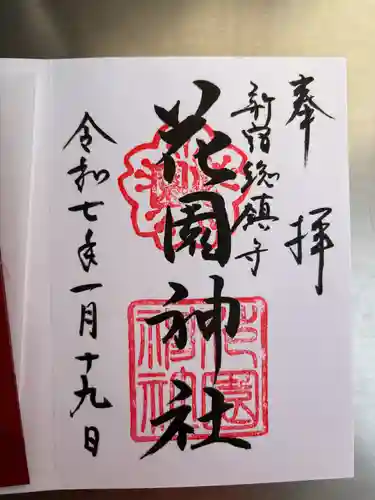 奉拝
新宿総鎮守
花園神社
令和七年一月十九日
花園神社